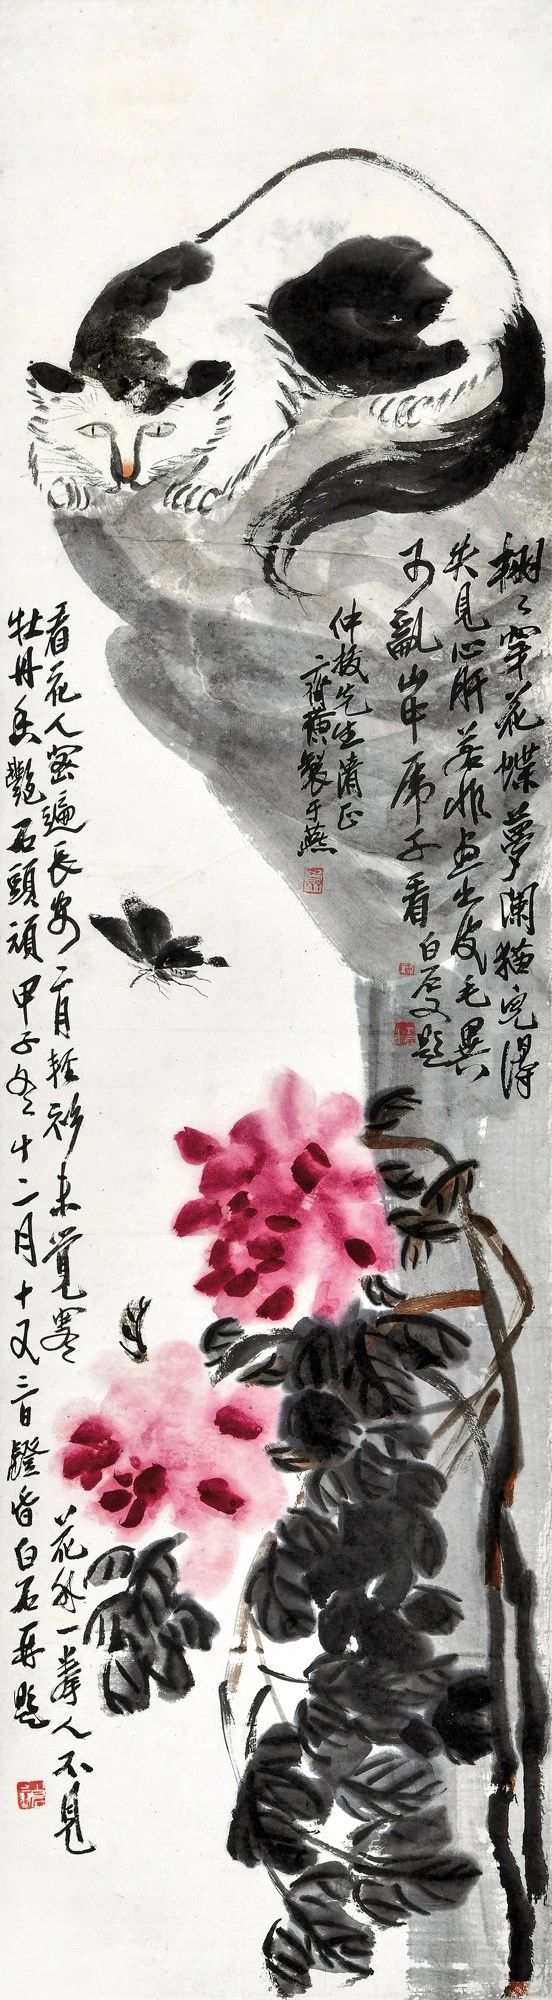 栩〻穿花蝶夢闌貓兒得
失見心肝若非畫出皮毛異
可亂山中虎子看 白石又題
仲拔先生清正
齊璜製于燕
看花人密遍長安二月輕衫未覺寒 花外一拳人不見
牡丹香艷石頭頑 甲子冬十二月十又三日鐙昏白石再題